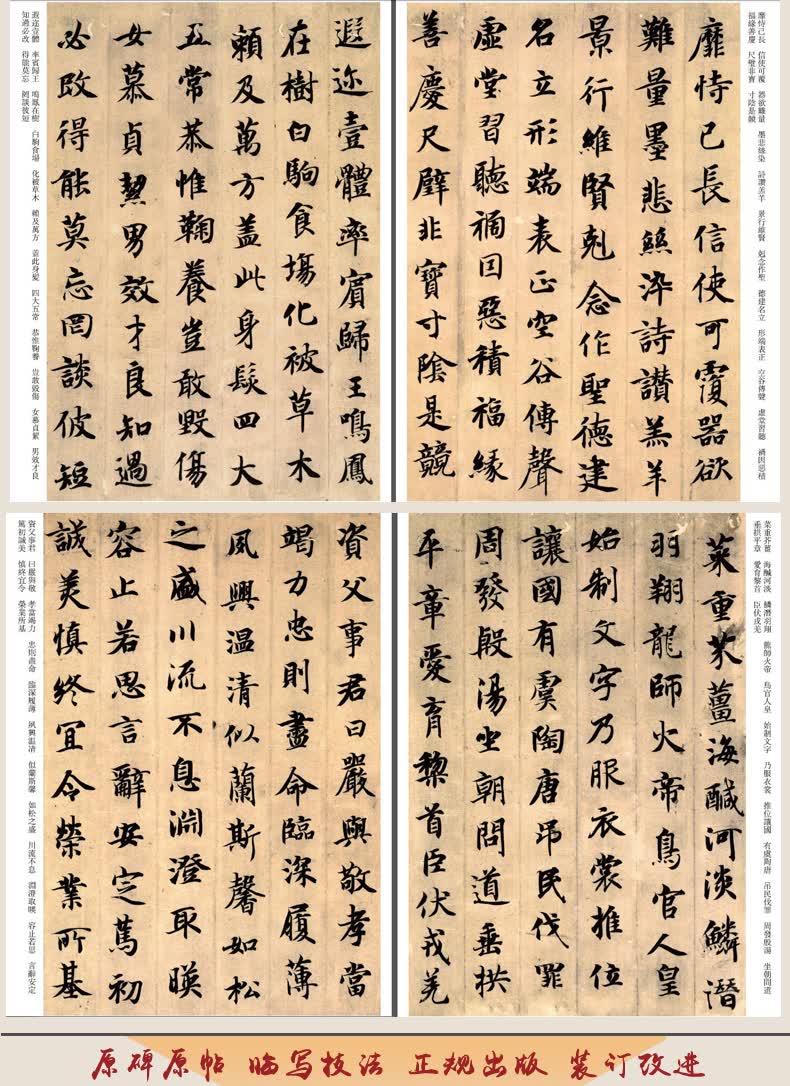 靡恃己長 信使可覆 器欲難量 墨悲絲染 詩讚羔羊 景行維賢 剋念作聖 德建名立 形端表正 空谷傳聲 虛堂習聽 禍因惡積
福緣善慶 尺璧非寶 寸陰是競
靡恃己長信使可覆器欲
難量墨悲絲染詩讚羔羊
景行維賢剋念作聖德建
名立形端表正空谷傳聲
虛堂習聽禍因惡積福緣
善慶尺璧非寶寸陰是競
遐迩壹體率賓歸王鳴鳳
在樹白駒食場化被草木
賴及萬方蓋此身髮四大
五常恭惟鞠養豈敢毀傷
女慕貞絜男效才良知過
必改得能莫忘罔談彼短
遐迩壹體 率賓歸王 鳴鳳在樹 白駒食場 化被草木 賴及萬方 蓋此身髮 四大五常 恭惟鞠養 豈敢毀傷 女慕貞絜 男效才良
知過必改 得能莫忘 罔談彼短
菜重芥薑 海鹹河淡 鱗潛羽翔 龍師火帝 鳥官人皇 始制文字 乃服衣裳 推位讓國 有虞陶唐 吊民伐罪 周發殷湯 坐朝問道
垂拱平章 愛育黎首 臣伏戎羌
菜重芥薑海鹹河淡鱗潛
羽翔龍師火帝鳥官人皇
始制文字乃服衣裳推位
讓國有虞陶唐吊民伐罪
周發殷湯坐朝問道垂拱
平章愛育黎首臣伏戎羌
資父事君曰嚴與敬孝當
竭力忠則盡命臨深履薄
夙興温凊似蘭斯馨如松
之盛川流不息淵澄取暎
容止若思言辭安定篤初
誠美慎終宜令榮業所基
資父事君 曰嚴與敬 孝當竭力 忠則盡命 臨深履薄 夙興温凊 似蘭斯馨 如松之盛 川流不息 淵澄取暎 容止若思 言辭安定
篤初誠美 慎終宜令 榮業所基
原碑原帖 临写技法 正规出版 装订改进